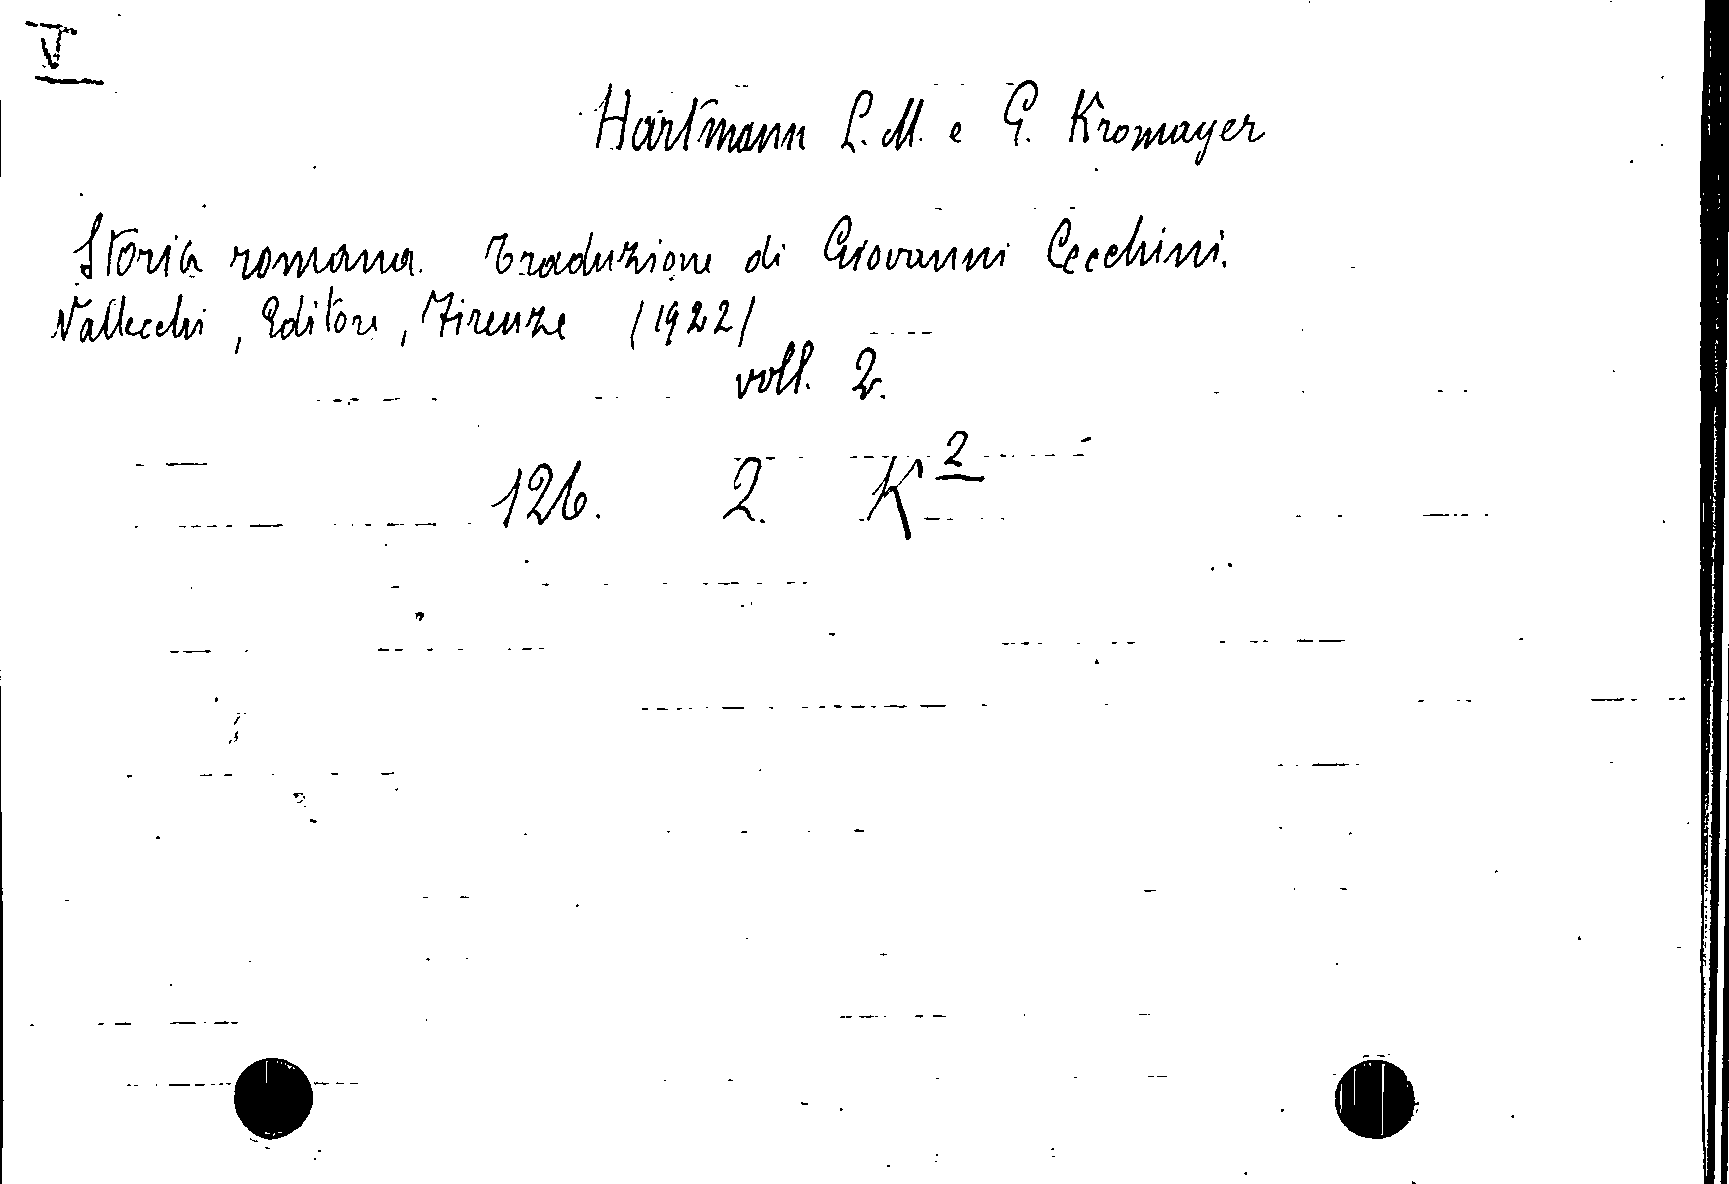 V
Hartmann L. M. e G. Kromayer
Storia romana. Traduzione di Giovanni Cecchini.
Vallecchi, Editore, Firenze (1922)
voll. 2.
126. 2. K²